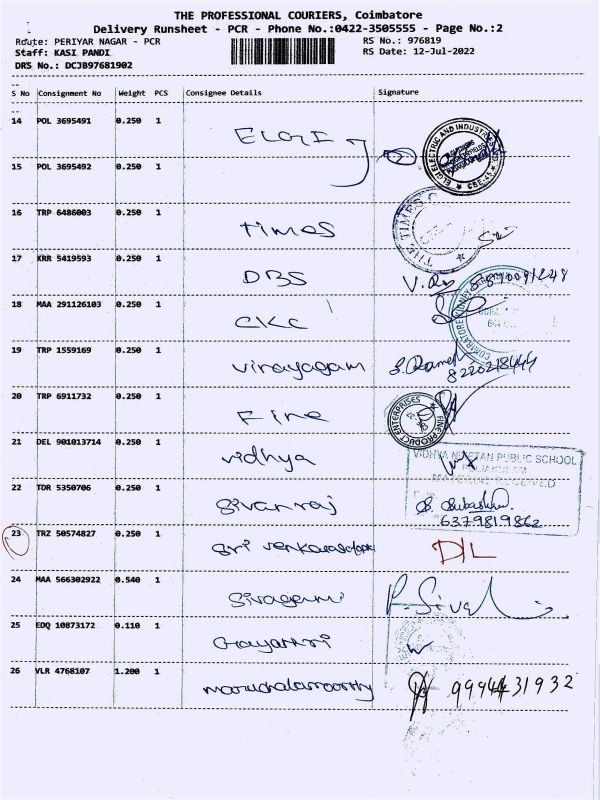 THE PROFESSIONAL COURIERS, Coimbatore
Delivery Runsheet - PCR - Phone No.:0422-3505555 - Page No.:2
Route: PERIYAR NAGAR - PCR RS No.: 976819
Staff: KASI PANDI RS Date: 12-Jul-2022
DRS No.: DCJB97681902
S No Consignment No Weight PCS Consignee Details Signature
14 POL 3695491 0.250 1 ELGI
ELGI ELECTRIC AND INDUSTRIES LTD. CBE-45
15 POL 3695492 0.250 1
16 TRP 6486003 0.250 1 Times
THE TIMES
17 KRR 5419593 0.250 1 DBS
18 MAA 291126103 0.250 1 CKC
COIMBATORE KIDNEY
19 TRP 1559169 0.250 1 Vinayagam
8220218444
20 TRP 6911732 0.250 1 Fine
FINE PRODUCT ENTERPRISES
21 DEL 901013714 0.250 1 vidhya
VIDHYA NIKETAN PUBLIC SCHOOL
MATERIAL RECEIVED
22 TDR 5350706 0.250 1 Sivanraj
6379819862
23 TRZ 50574827 0.250 1 Sri D/L
24 MAA 566302922 0.540 1 Sivagami P. Sivel
25 EDQ 10873172 0.110 1 Gayathri
26 VLR 4768107 1.200 1 Marudhalamoorthy 9994431932